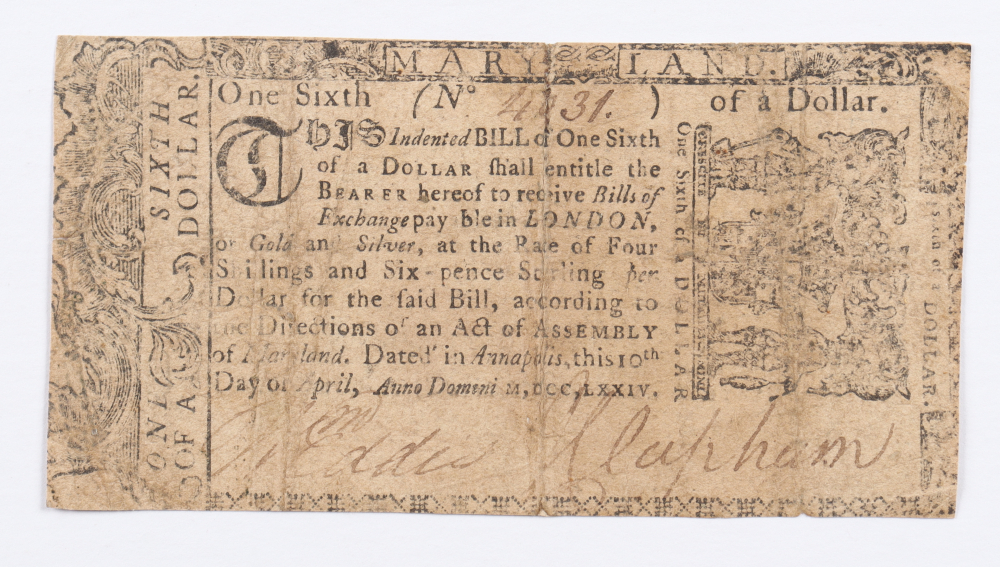 MARYLAND.
One Sixth (No. 4031.) of a Dollar.
THIS Indented BILL of One Sixth
of a DOLLAR ſhall entitle the
BEARER hereof to receive Bills of
Exchange payable in LONDON,
or Gold and Silver, at the Rate of Four
Shillings and Six-pence Sterling per
Dollar for the ſaid Bill, according to
the Directions of an Act of ASSEMBLY
of Maryland. Dated in Annapolis, this 10th
Day of April, Anno Domini M,DCC,LXXIV.
Wm Eddis J Clapham
ONE SIXTH
OF A DOLLAR.
One Sixth of a DOLLAR
CRESCITE ET
Sixth of a DOLLAR.